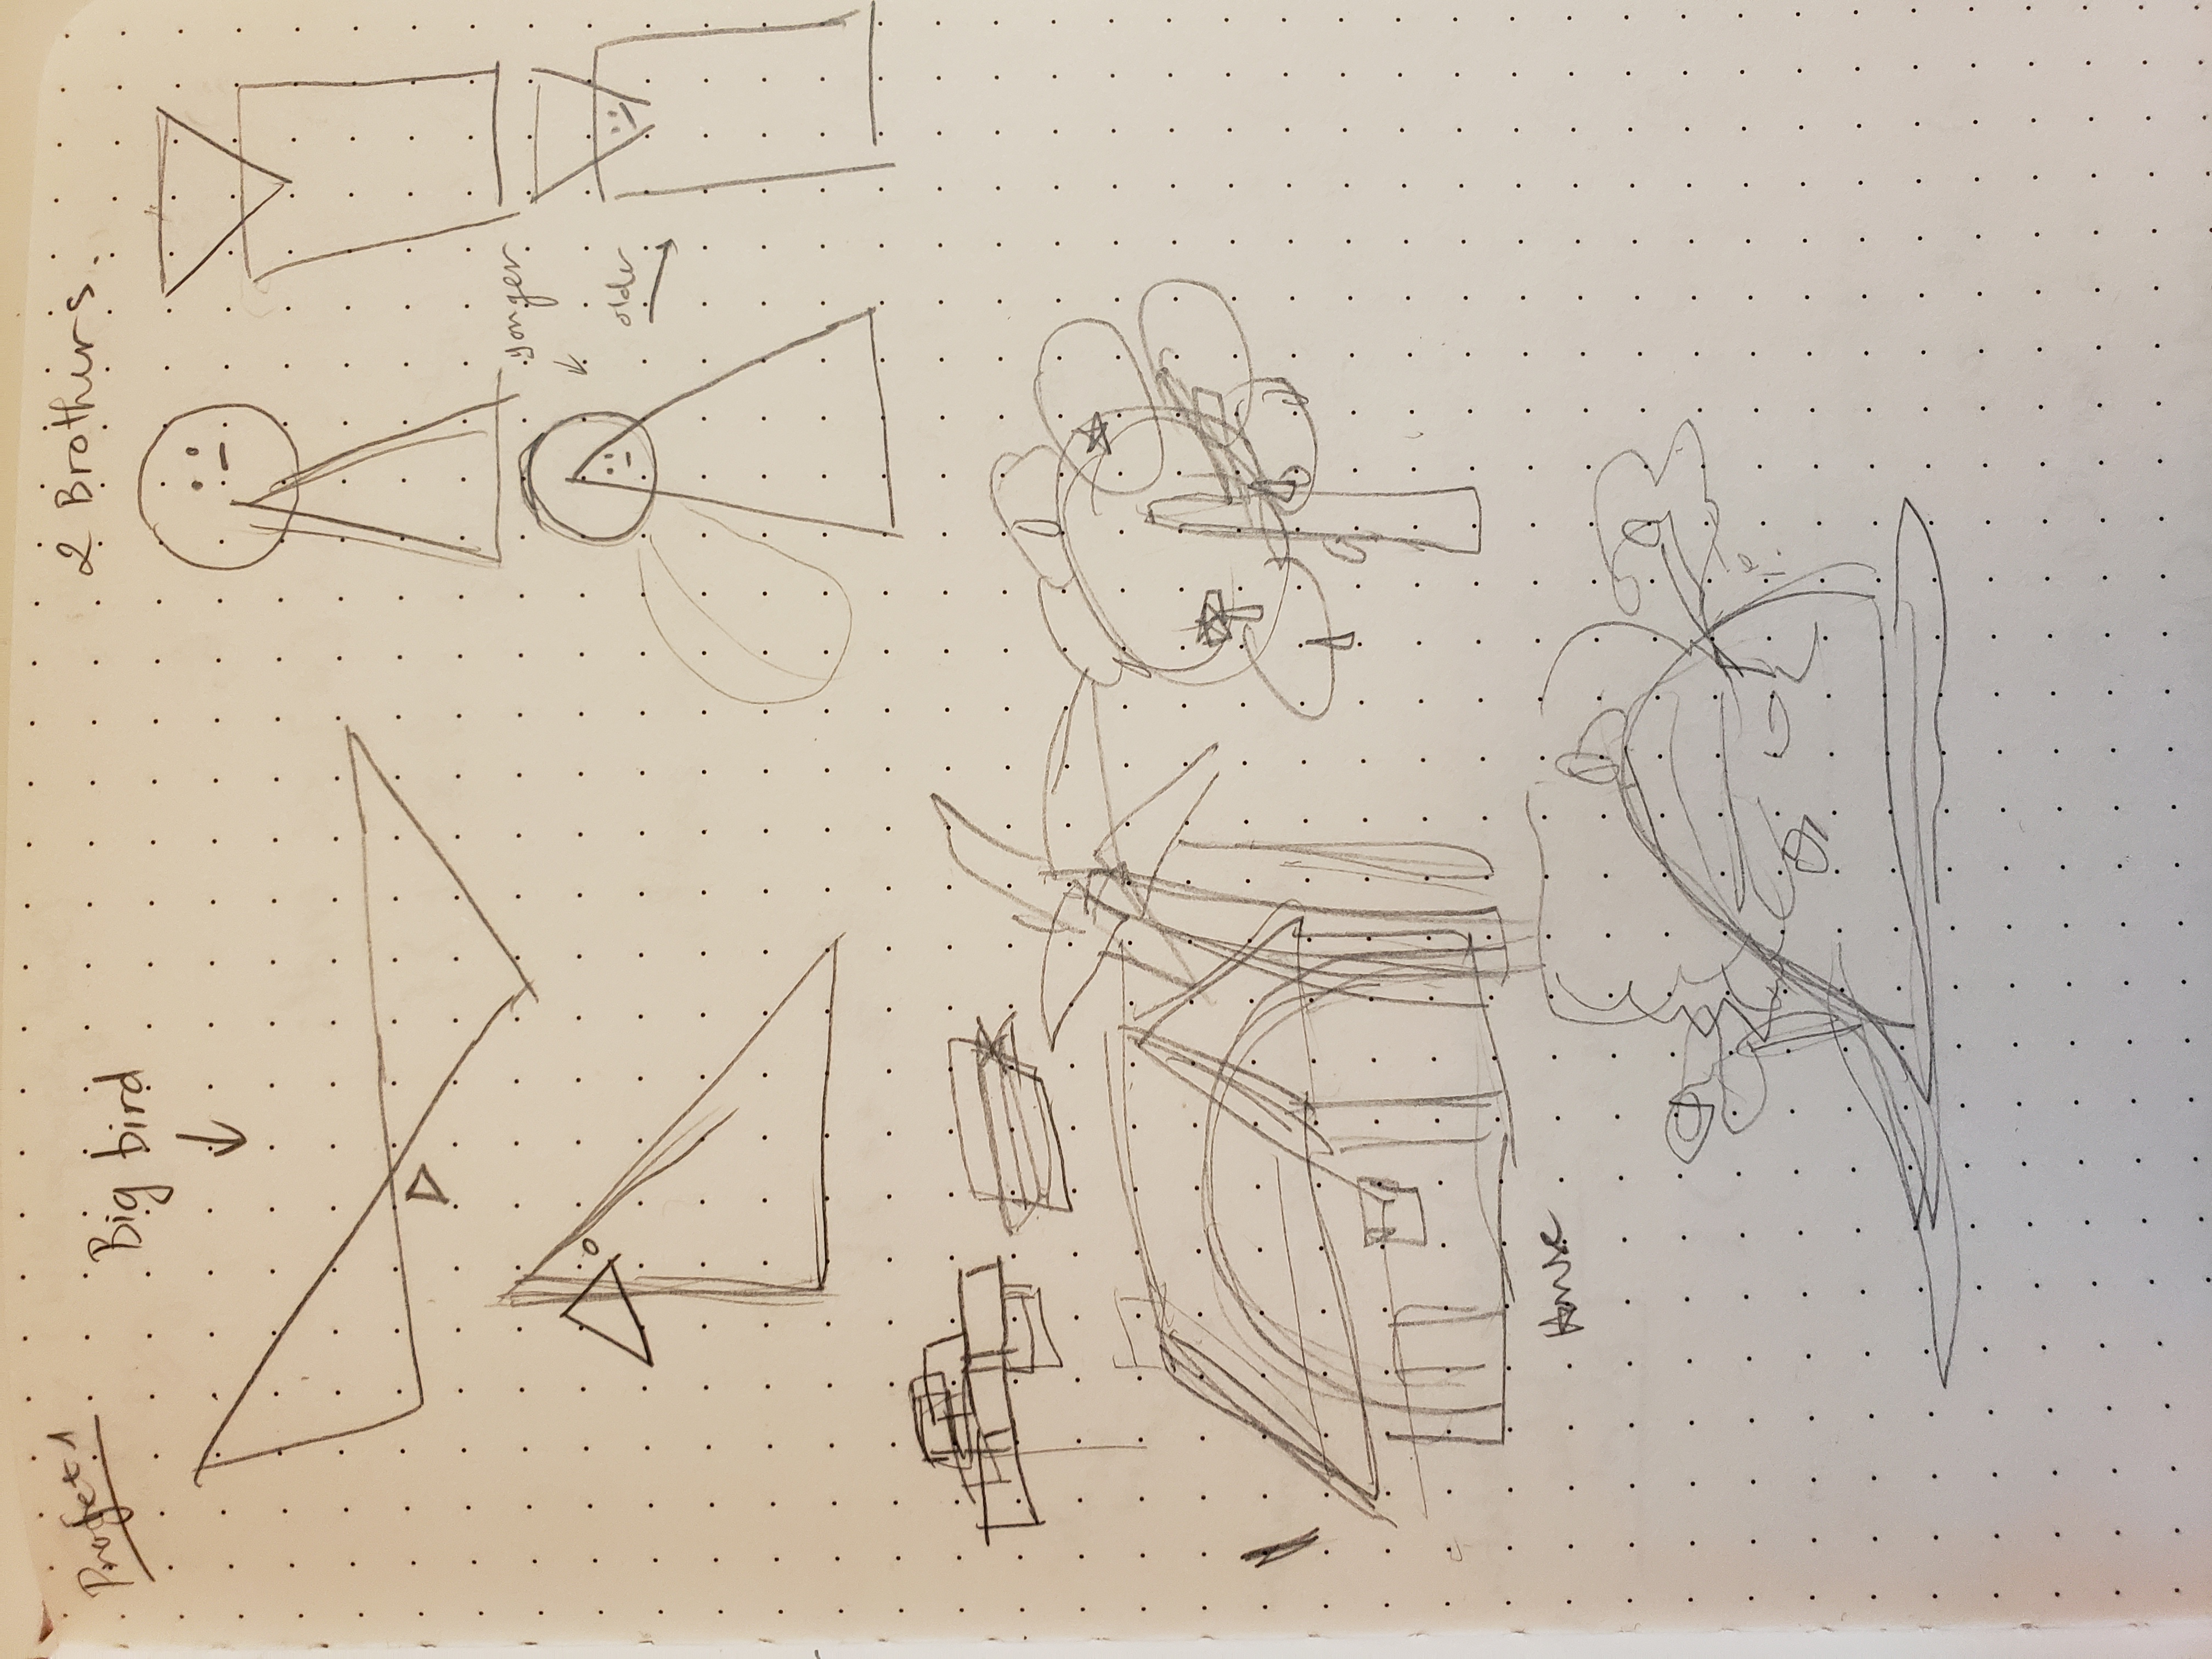 Profet 1
Big bird
2 Brothers.
yonger
older
House